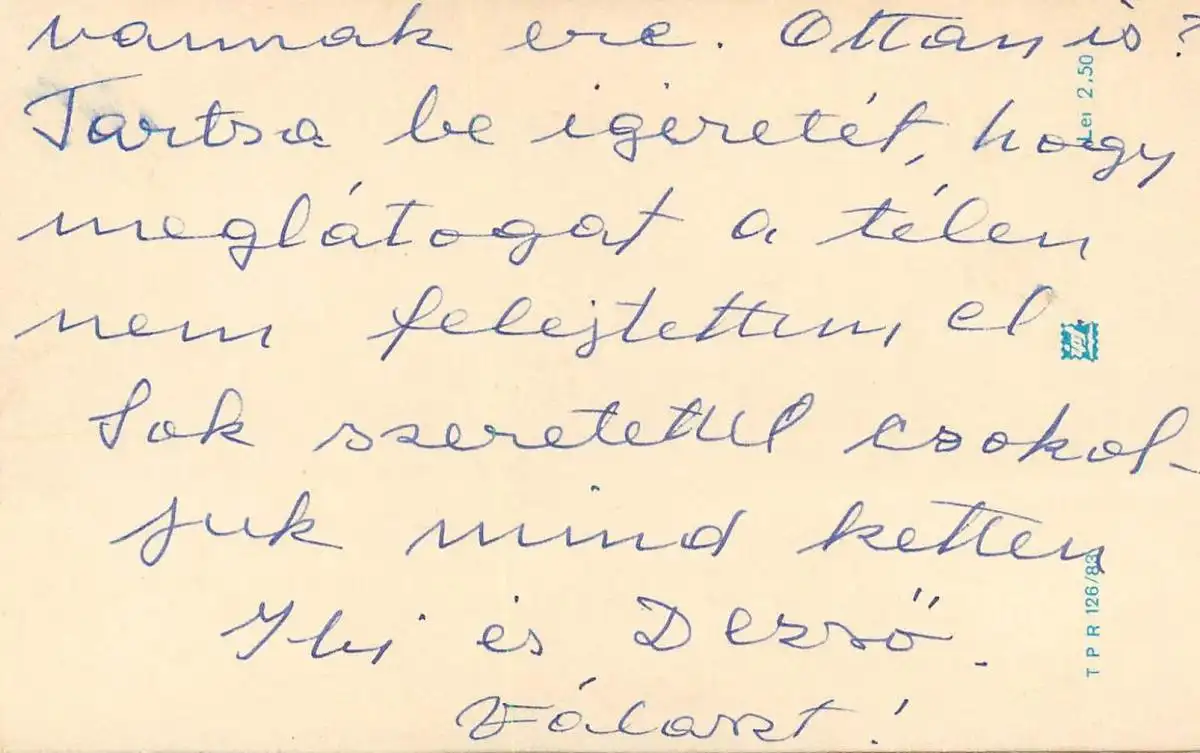 vannak ere. Ottan is?
Tartsa be igéretét, hogy
meglátogat a télen
nem felejtettem el
Sok szeretettel csokol-
juk mind ketten
Ibi és Dezső.
Választ!
Lei 2,50
T P R 126/83